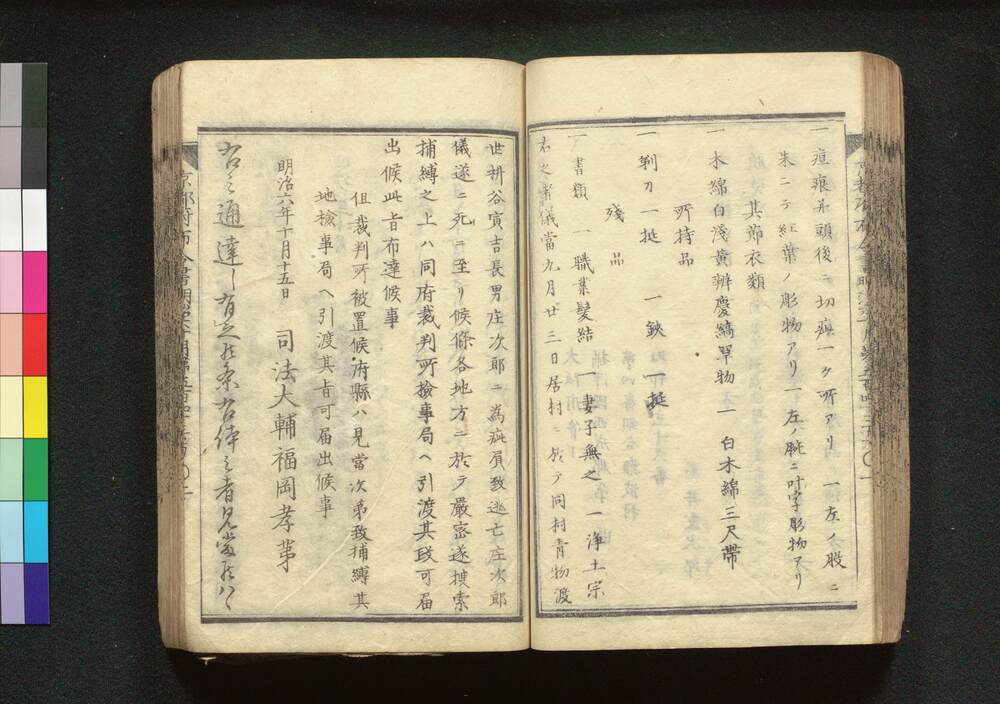 一 疵痕并頭後ニ切疵一ケ所アリ 一左ノ股ニ
朱ニテ紅葉ノ彫物アリ 一左ノ腕ニ叶字彫物アリ
其節衣類
一 木綿白淺黄辨慶縞單物 一 白木綿三尺帶
所持品
一 剃刀一挺 一 鋏一挺
殘品
一 書類 一 職業髪結 一 妻子無之 一 浄土宗
右之者儀當九月廿三日居村ニ於テ同村青物渡
世耕谷寅吉長男庄次郎ニ為疵負致逃亡庄次郎
儀遂ニ死ニ至リ候條各地方ニ於テ嚴密遂捜索
捕縛之上ハ同府裁判所撿事局ヘ引渡其段可届
出候此旨布達候事
但裁判所被置候府縣ハ見當次第致捕縛其
地撿事局ヘ引渡其旨可届出候事
明治六年十月十五日 司法大輔福岡孝弟
右之通達し有之候条右体之者見當候ハヽ